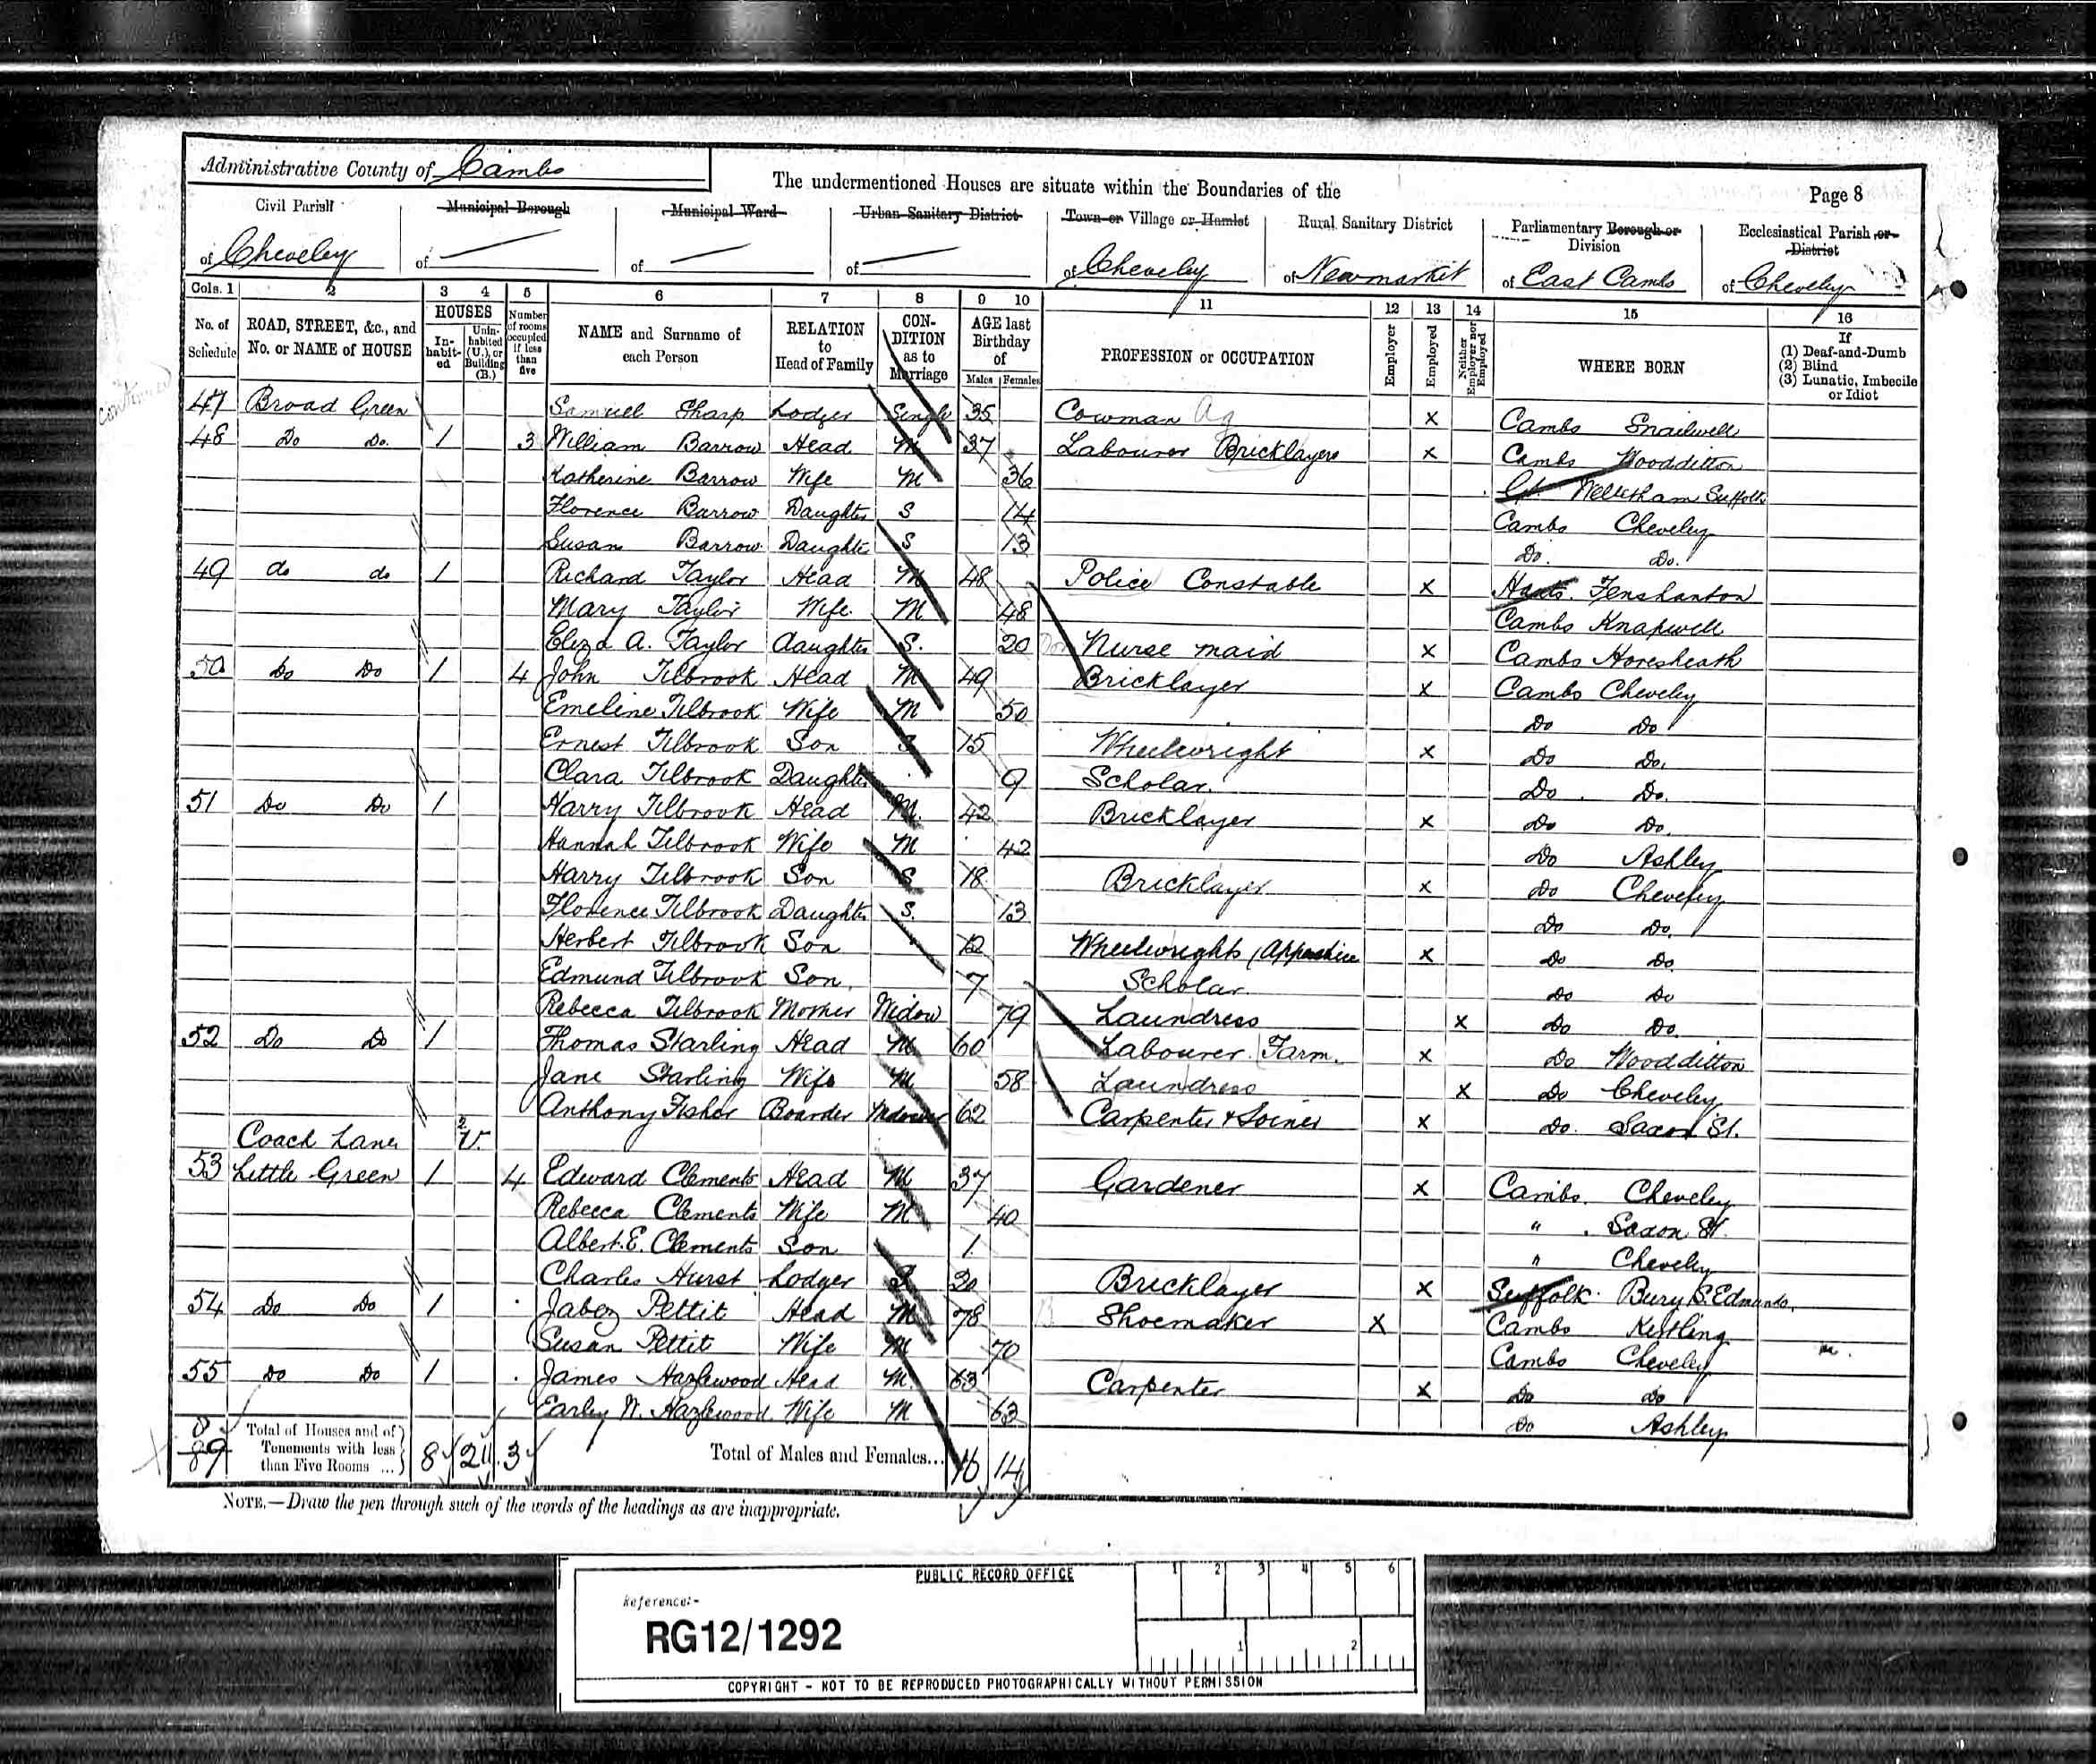 Administrative County of Cambs
The undermentioned Houses are situate within the Boundaries of the
Page 8
Civil Parish of Cheveley
Municipal Borough of
Municipal Ward of
Urban Sanitary District of
Town or Village or Hamlet of Cheveley
Rural Sanitary District of Newmarket
Parliamentary Borough or Division of East Cambs
Ecclesiastical Parish or District of Cheveley
Cols. 1 2 3 4 5 6 7 8 9 10 11 12 13 14 15 16
No. of Schedule
ROAD, STREET, &c., and No. or NAME of HOUSE
HOUSES
In-habit-ed
Unin-habited (U.), or Building (B.)
Number of rooms occupied if less than five
NAME and Surname of each Person
RELATION to Head of Family
CON-DITION as to Marriage
AGE last Birthday of
Males Females
PROFESSION or OCCUPATION
Employer
Employed
Neither Employer nor Employed
WHERE BORN
If
(1) Deaf-and-Dumb
(2) Blind
(3) Lunatic, Imbecile or Idiot
continued
47 Broad Green Samuel Sharp Lodger Single 35 Cowman Ag x Cambs Snailwell
48 Do Do. 1 3 William Barrow Head M 37 Labourer Bricklayers x Cambs Woodditton
Katherine Barrow Wife M 36 Suffolk
Florence Barrow Daughter S 14 Cambs Cheveley
Susan Barrow Daughter S 13 Do. Do.
49 do do 1 Richard Taylor Head M 48 Police Constable x Hunts. Fenstanton
Mary Taylor Wife M 48 Cambs Knapwell
Eliza A. Taylor daughter S. 20 Nurse maid x Cambs Horesheath
50 Do Do 1 4 John Tilbrook Head M 49 Bricklayer x Cambs Cheveley
Emeline Tilbrook Wife M 50 Do Do
Ernest Tilbrook Son S 15 Wheelwright x Do Do.
Clara Tilbrook Daughter 9 Scholar. Do. Do.
51 Do Do 1 Harry Tilbrook Head M. 42 Bricklayer x Do Do.
Hannah Tilbrook Wife M 42 Do Ashley
Harry Tilbrook Son S 18 Bricklayer x Do Cheveley
Florence Tilbrook Daughter S. 13 Do Do.
Herbert Tilbrook Son 12 Wheelwrights (Apprentice x Do Do.
Edmund Tilbrook Son. 7 Scholar Do Do
Rebecca Tilbrook Mother Widow 79 Laundress x Do Do.
52 Do Do 1 Thomas Starling Head M 60 Labourer Farm. x Do Woodditton
Jane Starling Wife M 58 Laundress x Do Cheveley
Anthony Fisher Boarder Widower 62 Carpenter & Joiner x Do. Saxon St.
Coach Lane 2 U.
53 Little Green 1 4 Edward Clements Head M 37 Gardener x Cambs. Cheveley
Rebecca Clements Wife M 40 " Saxon St.
Albert E. Clements Son 1 " Cheveley
Charles Hurst Lodger S 30 Bricklayer x Suffolk Bury S. Edmunds.
54 Do Do 1 Jabez Pettit Head M 78 Shoemaker x Cambs Kirtling
Susan Pettit Wife M 70 Cambs Cheveley
55 Do Do 1 James Hazlewood Head M 63 Carpenter x Do Do
Earley W. Hazlewood Wife M 63 Do Ashley
Total of Houses and of Tenements with less than Five Rooms ... 8 2 U. 3
Total of Males and Females... 16 14
NOTE.—Draw the pen through such of the words of the headings as are inappropriate.
PUBLIC RECORD OFFICE
1 2 3 4 5 6
Reference:-
RG12/1292
1 2
COPYRIGHT - NOT TO BE REPRODUCED PHOTOGRAPHICALLY WITHOUT PERMISSION